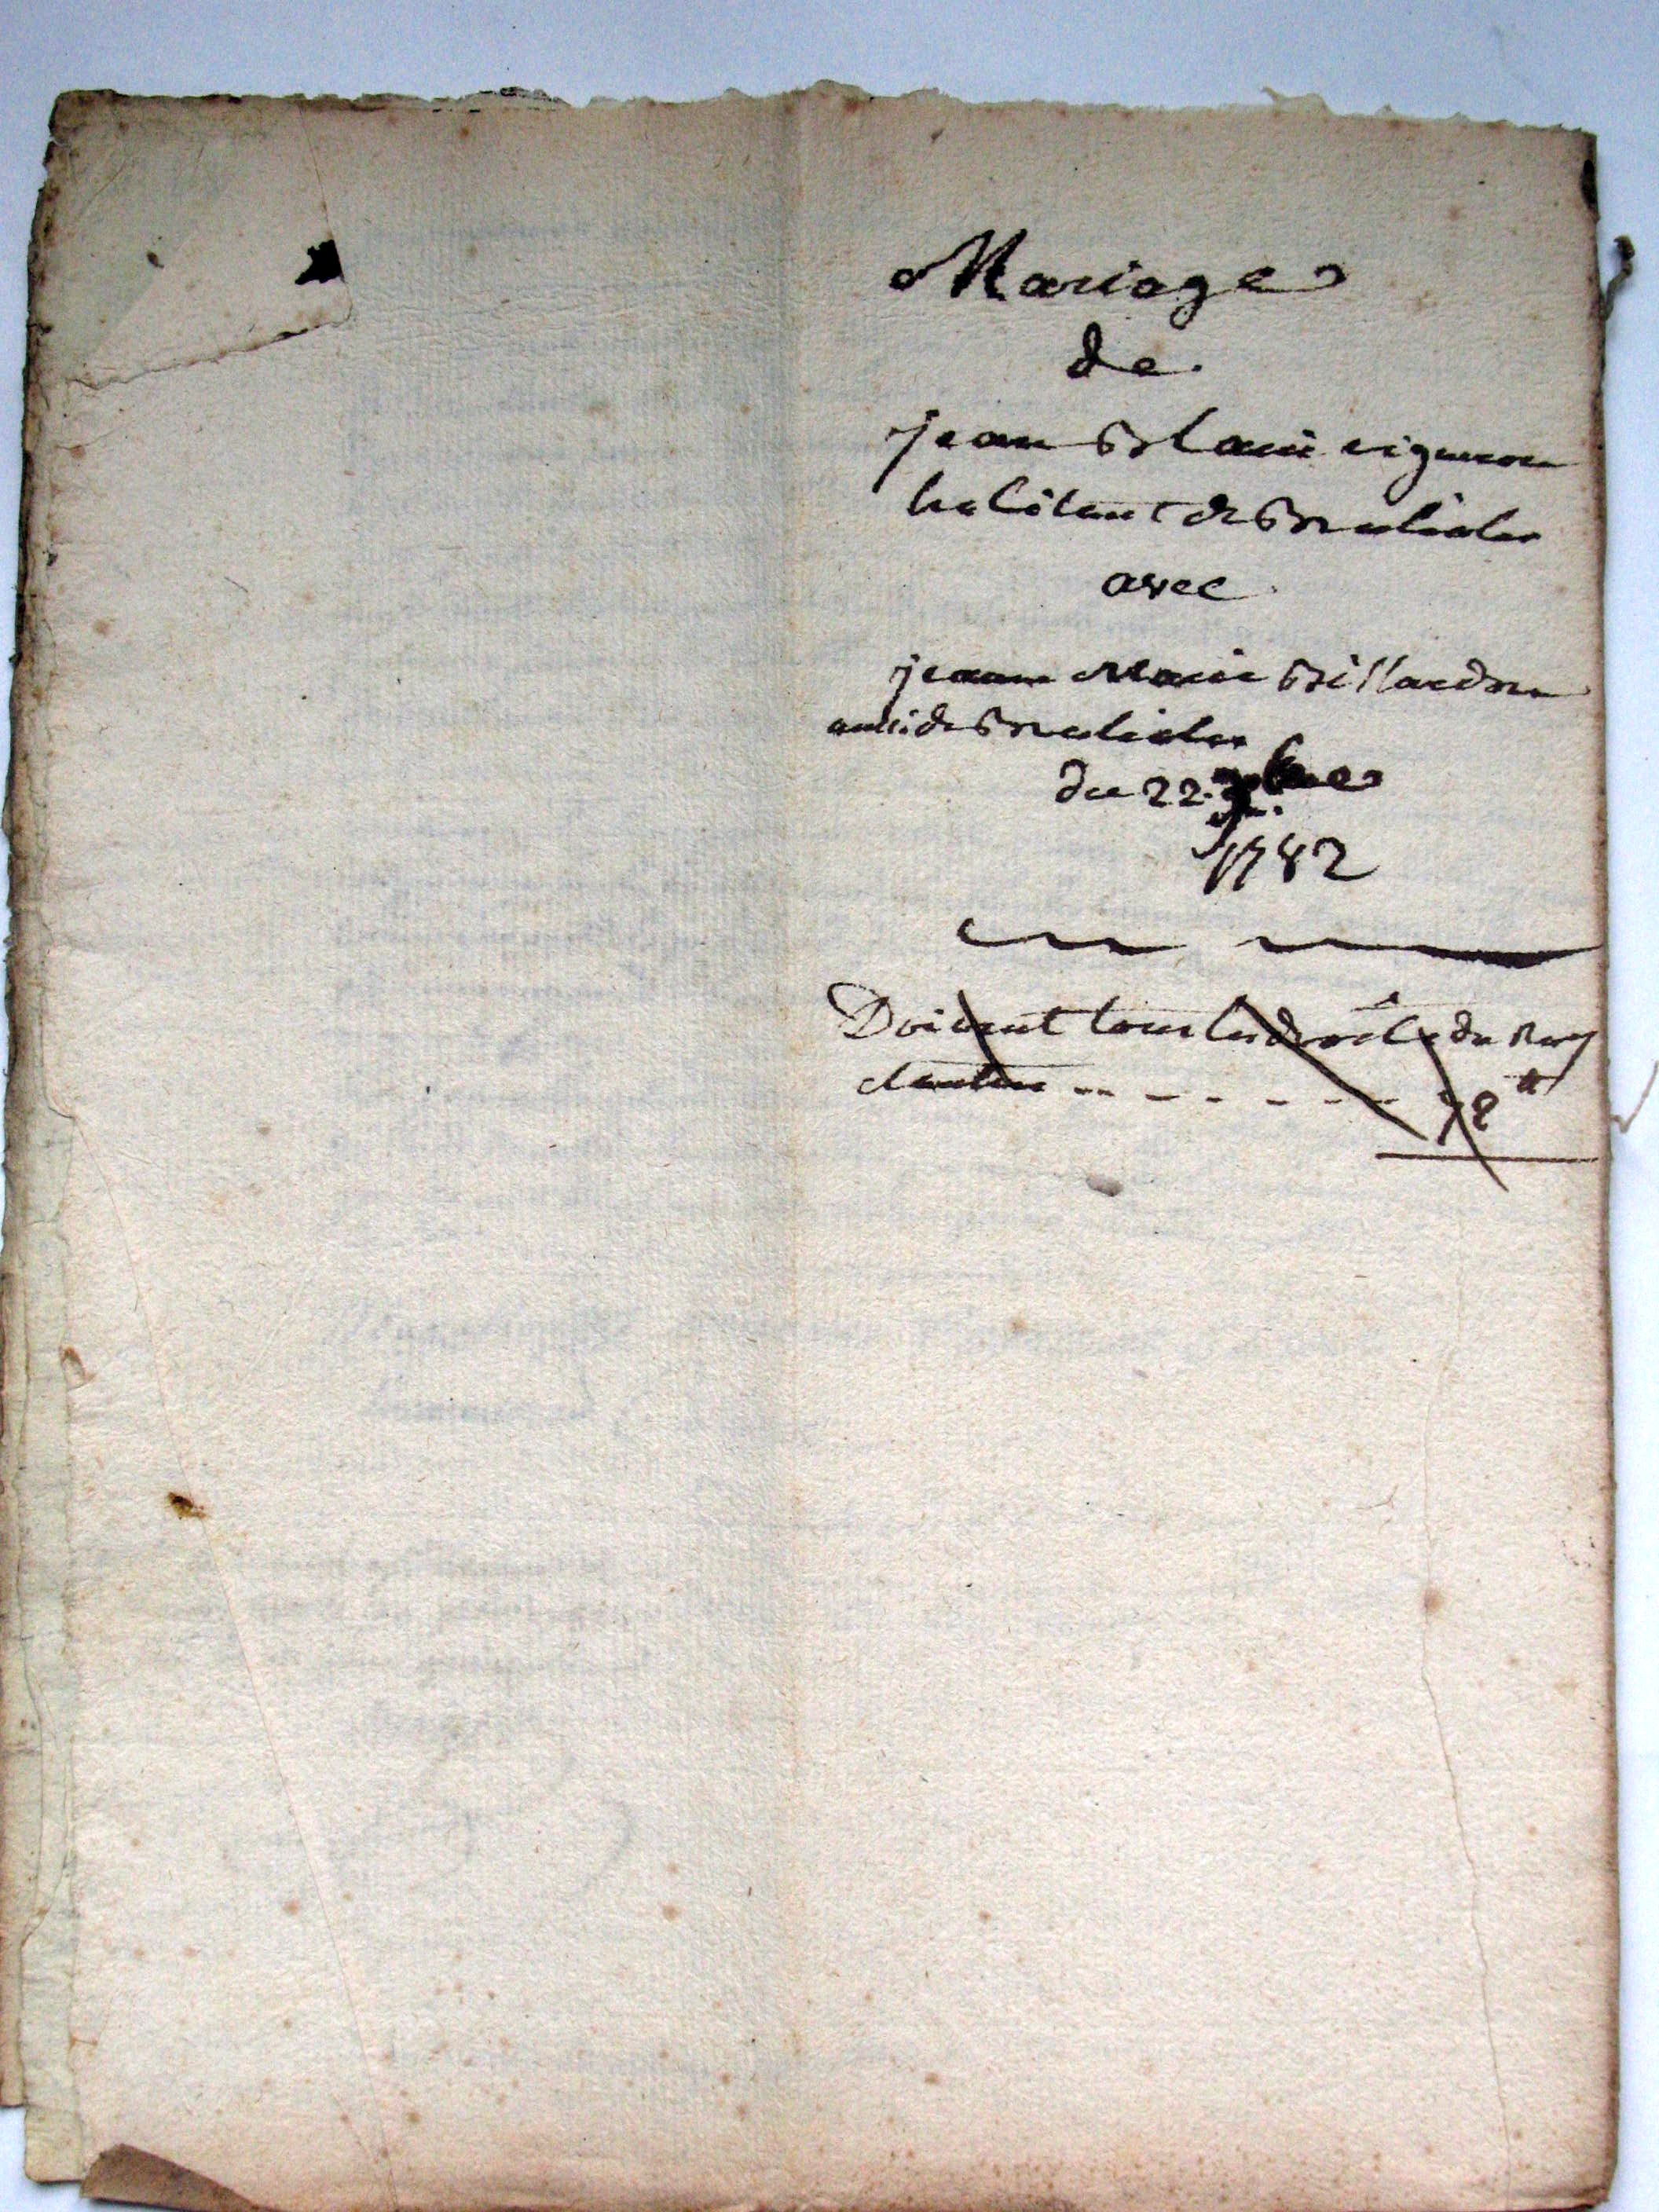 Mariage
de
jean Blain vigneron
habitant de
avec
jeanne Marie Billardon
aussi de
du 22
1782
Doivent tous les droits du Roy
78 ₶